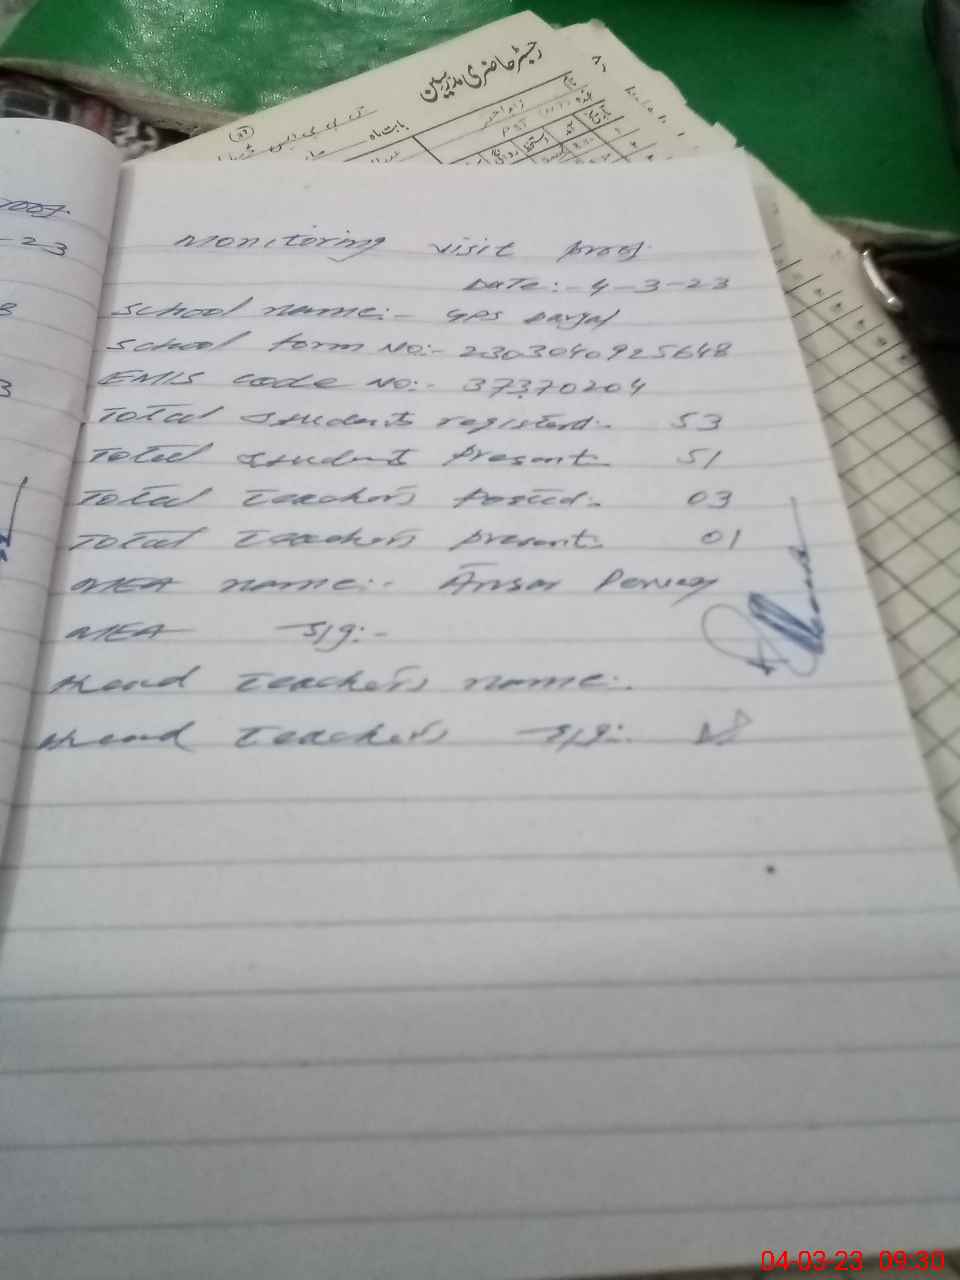 رجسٹر حاضری مدرسین
بابت ماہ
-23
Monitoring visit proof
Date:- 4-3-23
School name:- GPS Daryal
School form No:- 2303040925648
EMIS code No:- 37370204
Total students registerd:- 53
Total students present:- 51
Total teachers posted:- 03
Total teachers present:- 01
MEA name:- Ansar Pervez
MEA sig:-
Head teachers name:-
Head teachers sig:-
04-03-23 09:30